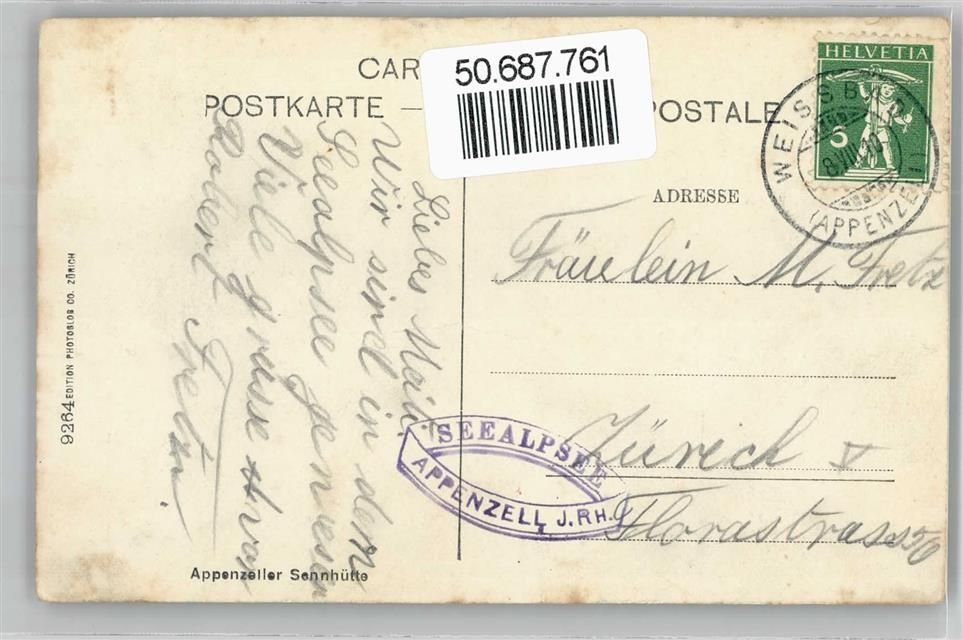 CAR
50.687.761
POSTKARTE — POSTALE
HELVETIA
5
WEISSBAD
8.VIII.10
(APPENZELL)
ADRESSE
Fräulein M. Fretz
Zürich V
Florastrasse 50
Liebes Maiti
Wir sind in den
Seealpsee gewesen
Viele grüsse
Robert Fretz
SEEALPSEE
APPENZELL J.RH.
9264 EDITION PHOTOGLOB CO. ZÜRICH
Appenzeller Sennhütte